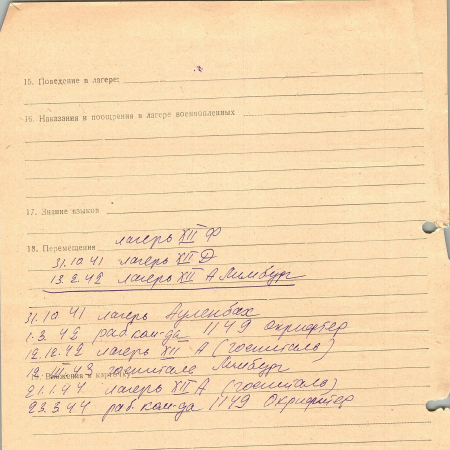 15. Поведение в лагере:
16. Наказания и поощрения в лагере военнопленных
17. Знание языков
18. Перемещения лагерь XII Ф
31.10 41 лагерь XII Д
13.2.42 лагерь XII А Лимбург
31.10 41 лагерь Ауленбах
1.3.42 раб. ком-да 1149 Окрифтер
12.12.42 лагерь XII А (госпиталь)
12.III.43 госпитале Лимбург
21.1.44 лагерь XII А (госпиталь)
23.3 44 раб. ком-да 1149 Окрифтер